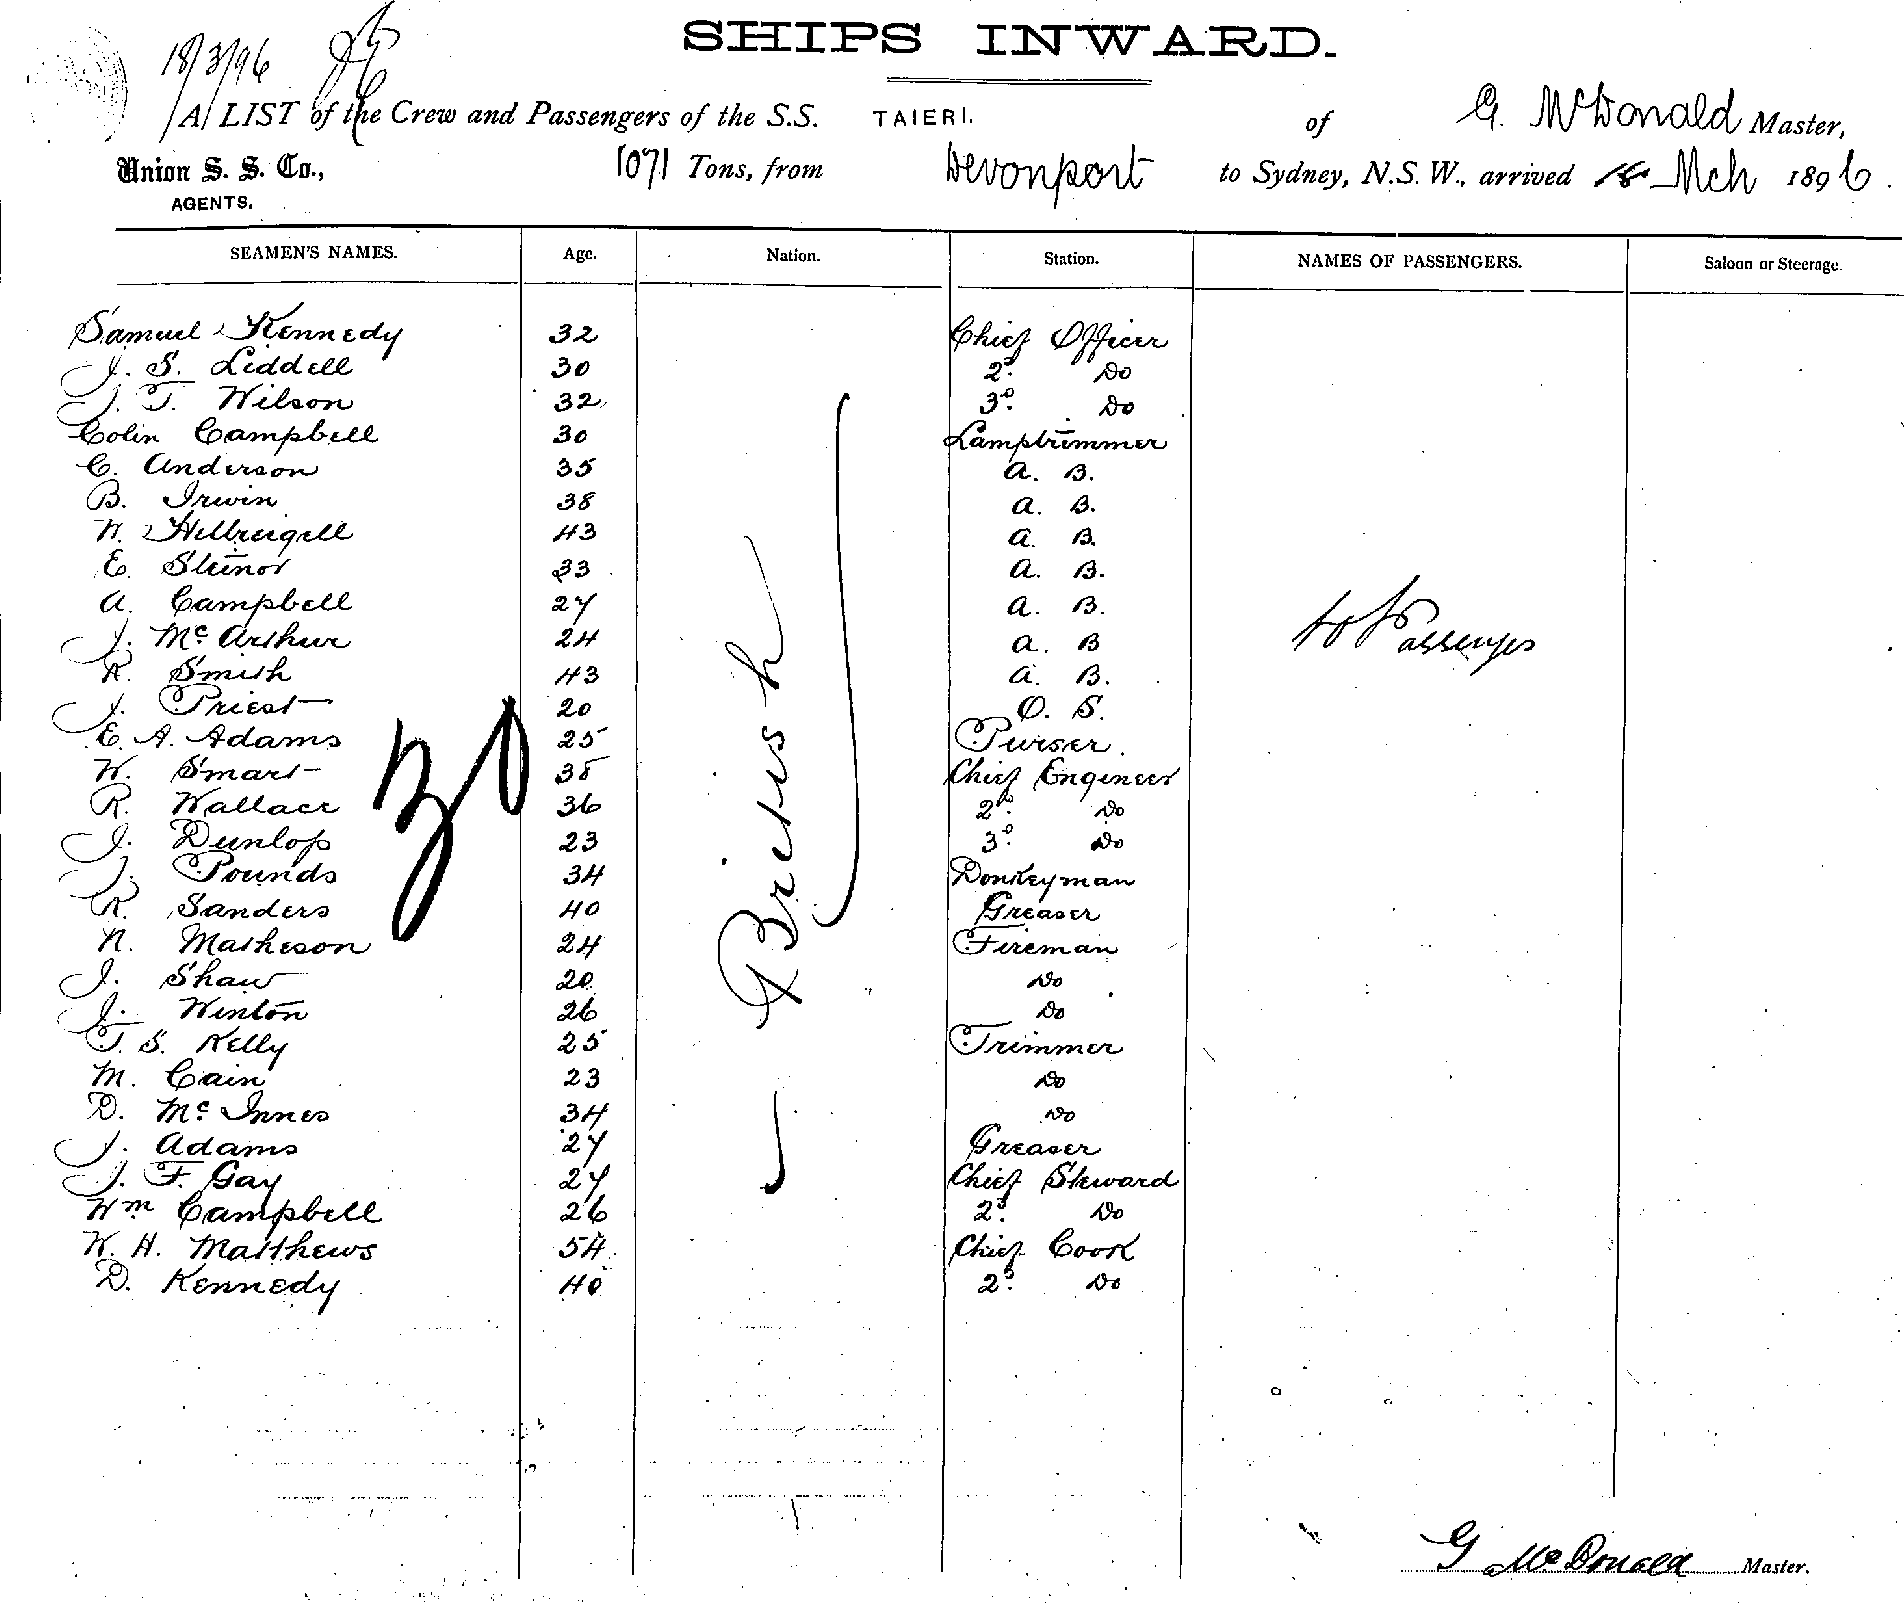 SHIPS INWARD.
18/3/96
A LIST of the Crew and Passengers of the S.S. TAIERI. of G. McDonald Master,
Union S. S. Co., 1071 Tons, from Devonport to Sydney, N.S.W., arrived 18 Mch 1896.
AGENTS.
SEAMEN'S NAMES. Age. Nation. Station. NAMES OF PASSENGERS. Saloon or Steerage.
Samuel Kennedy 32 Chief Officer
J. S. Liddell 30 2d. Do
J. T. Wilson 32 3d. Do
Colin Campbell 30 Lamptrimmer
C. Anderson 35 A. B.
B. Irwin 38 A. B.
W. 43 A. B.
E. Steinor 33 A. B.
A. Campbell 27 A. B.
J. McArthur 24 A. B
R. Smith 43 A. B.
J. Priest 20 O. S.
E. A. Adams 25 Purser.
W. Smart 38 Chief Engineer
R. Wallace 36 2d. Do
J. Dunlop 23 3d. Do
J. Pounds 34 Donkeyman
R. Sanders 40 Greaser
N. Matheson 24 Fireman
J. Shaw 20 Do
J. Winton 26 Do
T. S. Kelly 25 Trimmer
M. Cain 23 Do
D. McInnes 34 Do
J. Adams 27 Greaser
J. F. Gay 27 Chief Steward
Wm Campbell 26 2d. Do
W. H. Matthews 54 Chief Cook
D. Kennedy 40 2d. Do
30
British
No Passengers
G McDonald Master.